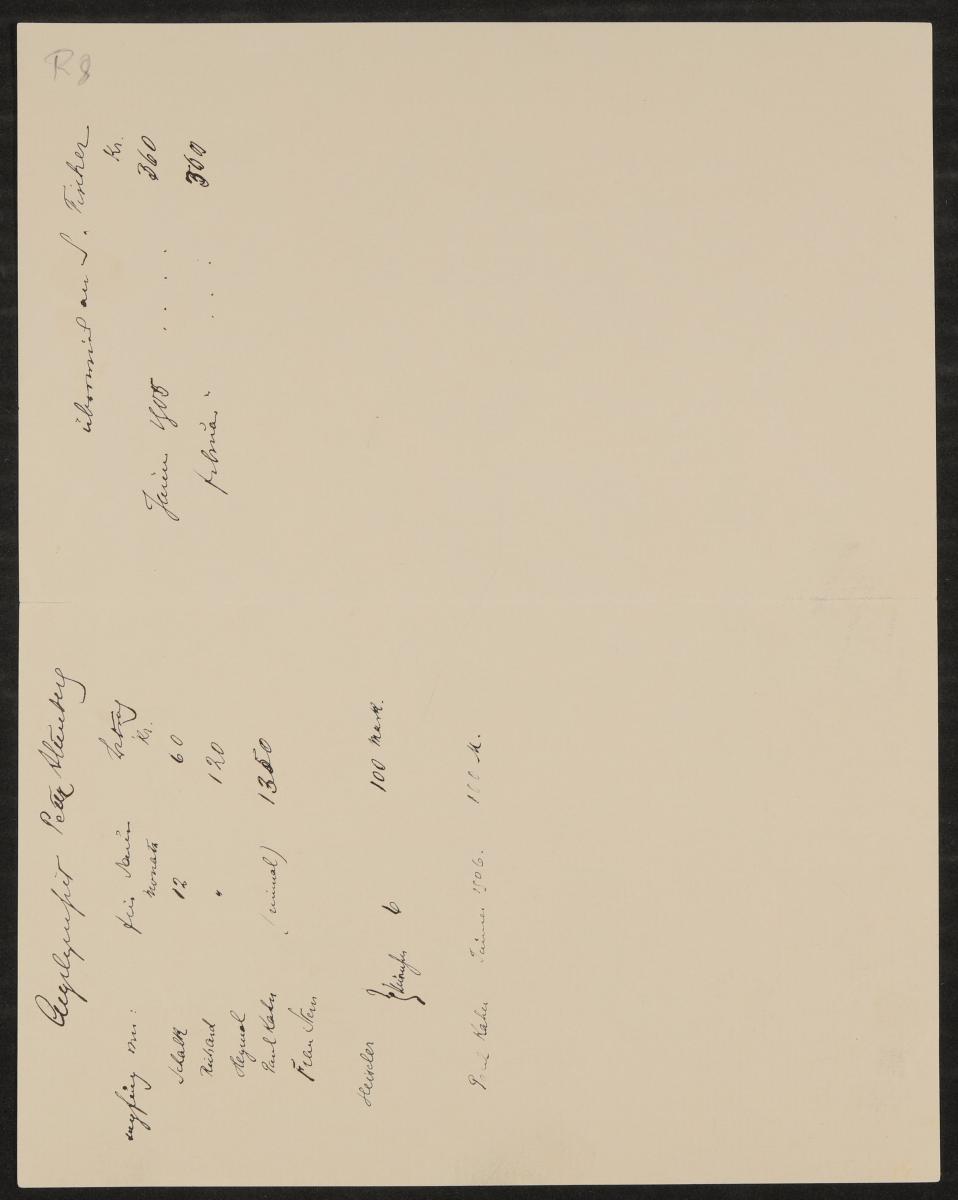 Angelegenheit Peter Altenberg
empfing von:
für Dauer Betrag
Monate Kr.
Schalk 12 60
Richard " 120
Hegmal
Paul Kahn (einmal) 1350
Frau Stern
Heiseler 100 Mark.
6
Paul Kahn Jänner 1906. 100 M.
überwies an S. Fischer
Kr.
Jänner 1905 . . . . 360
Februar " . . . 360
R 8